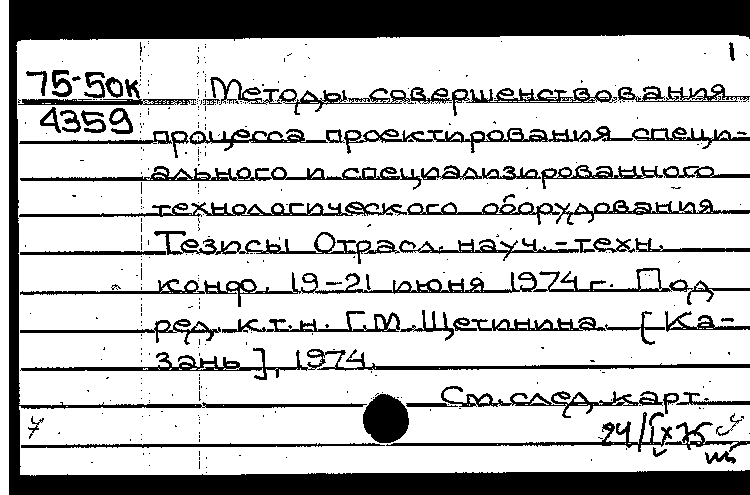 1
75-50к
4359
Методы совершенствования
процесса проектирования специ-
ального и специализированного
технологического оборудования
Тезисы Отрасл. науч.-техн.
конф. 19-21 июня 1974 г. Под
ред. к.т.н. Г.М. Щетинина. [Ка-
зань], 1974.
См. след. карт.
7